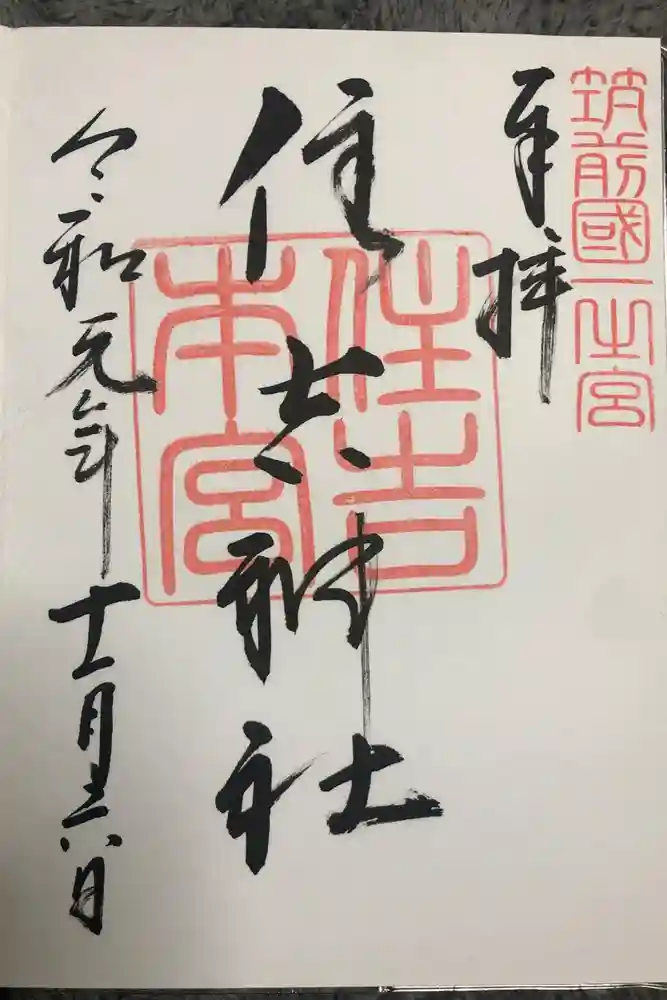 筑前國一之宮
奉拝
住吉神社
住吉
本宮
令和元年十一月十六日